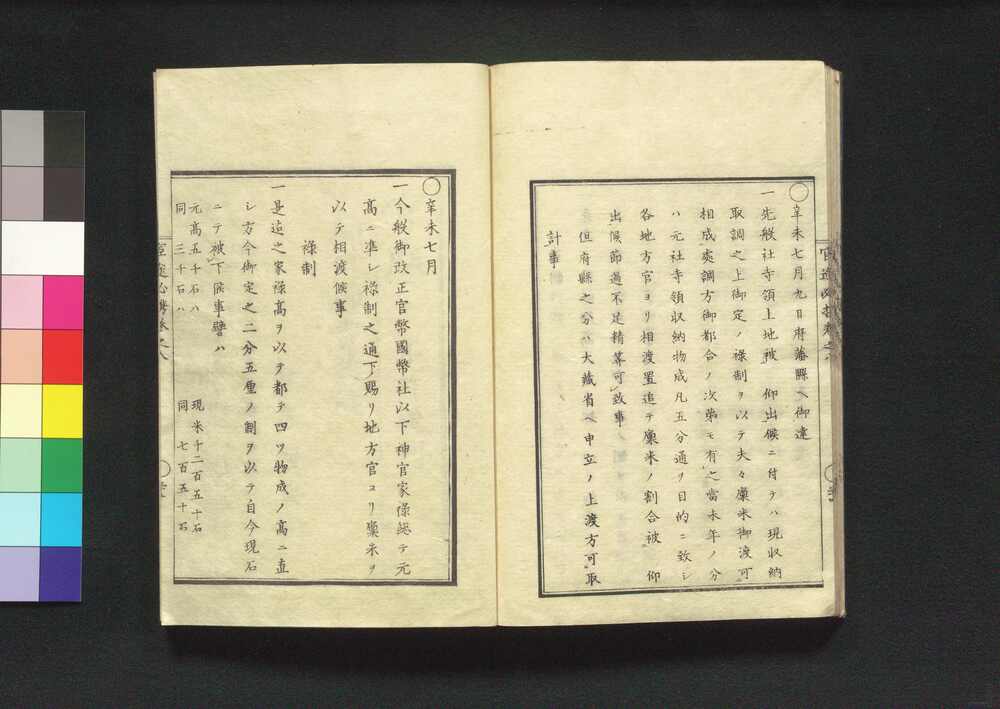 〇辛未七月九日府藩縣ヘ御達
一先般社寺領上地被 仰出候ニ付テハ現収納
取調之上御定ノ祿制ヲ以テ夫々廩米御渡可
相成處調方御都合ノ次第モ有之當未年ノ分
ハ元社寺領収納物成凡五分通ヲ目的ニ致シ
各地方官ヨリ相渡置追テ廩米ノ割合被 仰
出候節過不足精算可致事
但府縣之分ハ大藏省ヘ申立ノ上渡方可取
計事
〇辛未七月
一今般御改正官幣國幣社以下神官家祿總テ元
高ニ準シ祿制之通下賜リ地方官ヨリ廩米ヲ
以テ相渡候事
祿制
一是迄之家祿高ヲ以テ都テ四ツ物成ノ高ニ直
シ方今御定之二分五厘ノ割ヲ以テ自今現石
ニテ被下候事譬ハ
元高五千石ハ 現米千二百五十石
同 三千石ハ 同 七百五十石